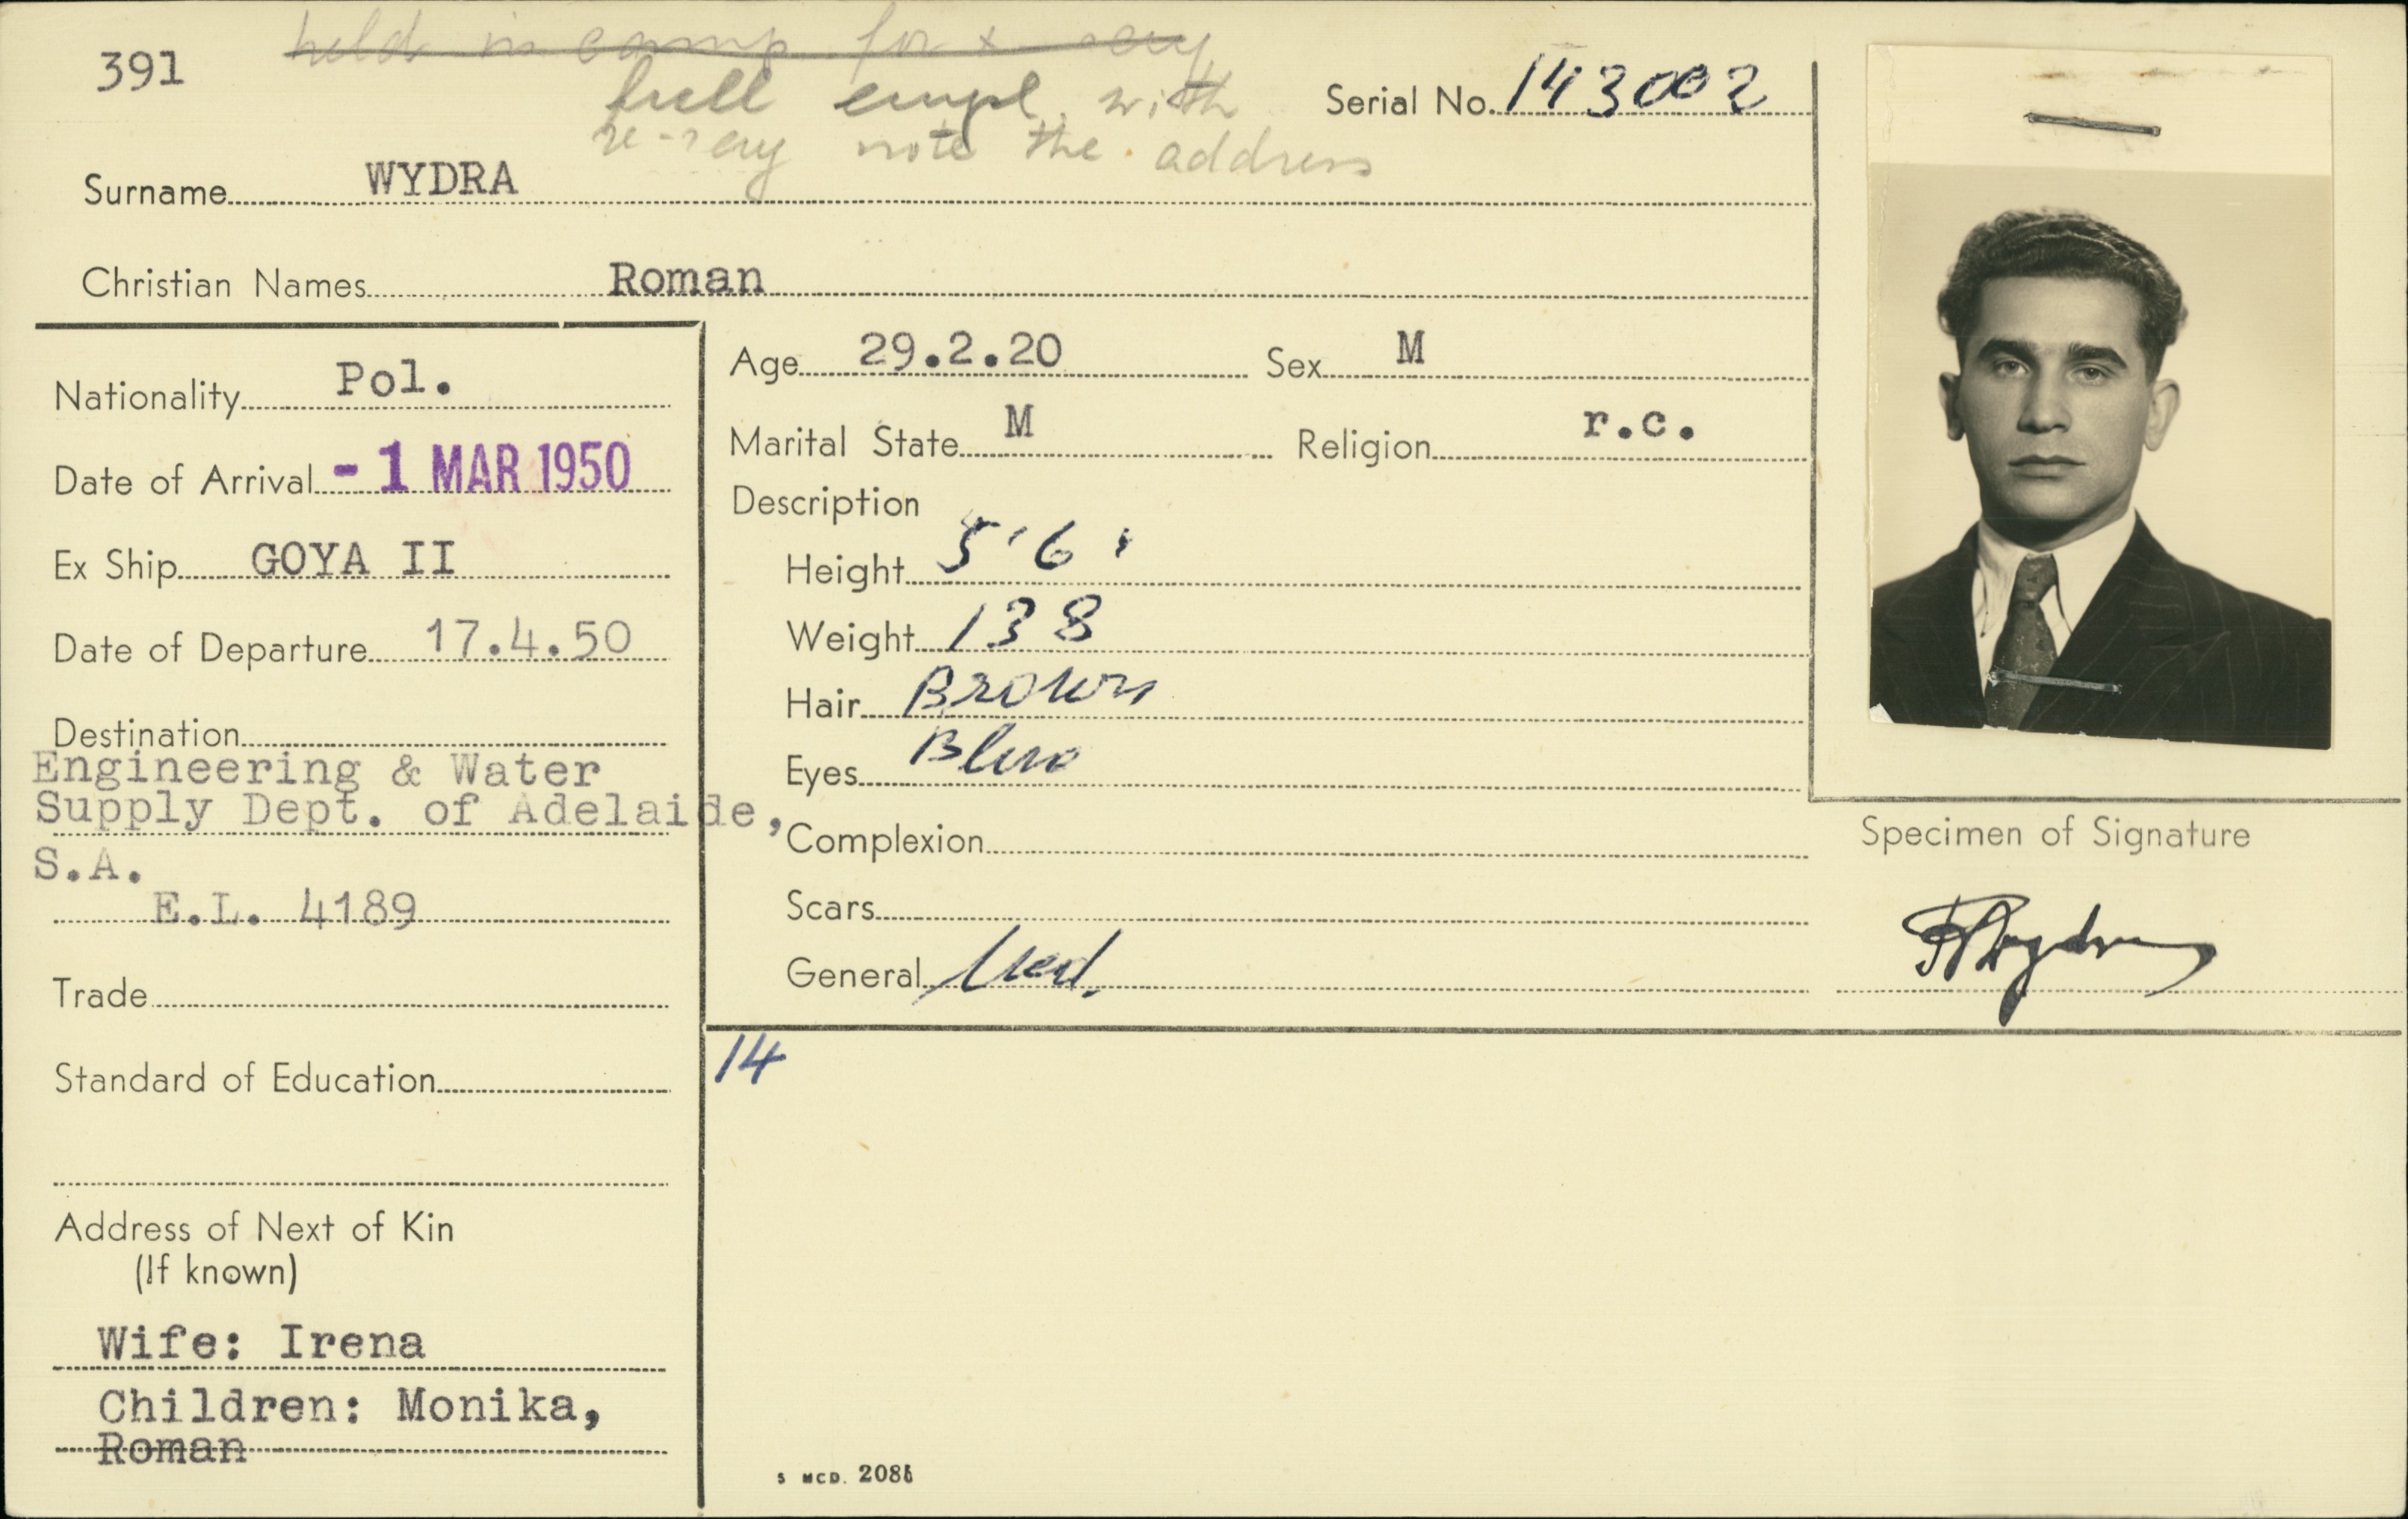 391
held in camp for x-ray
full empl. with
re-xray note the address
Serial No. 143002
Surname WYDRA
Christian Names Roman
Nationality Pol.
Date of Arrival - 1 MAR 1950
Ex Ship GOYA II
Date of Departure 17.4.50
Destination
Engineering & Water
Supply Dept. of Adelaide,
S.A.
E.L. 4189
Trade
Standard of Education
Address of Next of Kin
(If known)
Wife: Irena
Children: Monika,
Roman
Age 29.2.20 Sex M
Marital State M Religion r.c.
Description
Height 5'6'
Weight 138
Hair Brown
Eyes Blue
Complexion
Scars
General Med.
14
S MCD. 2086
Specimen of Signature
RWydra